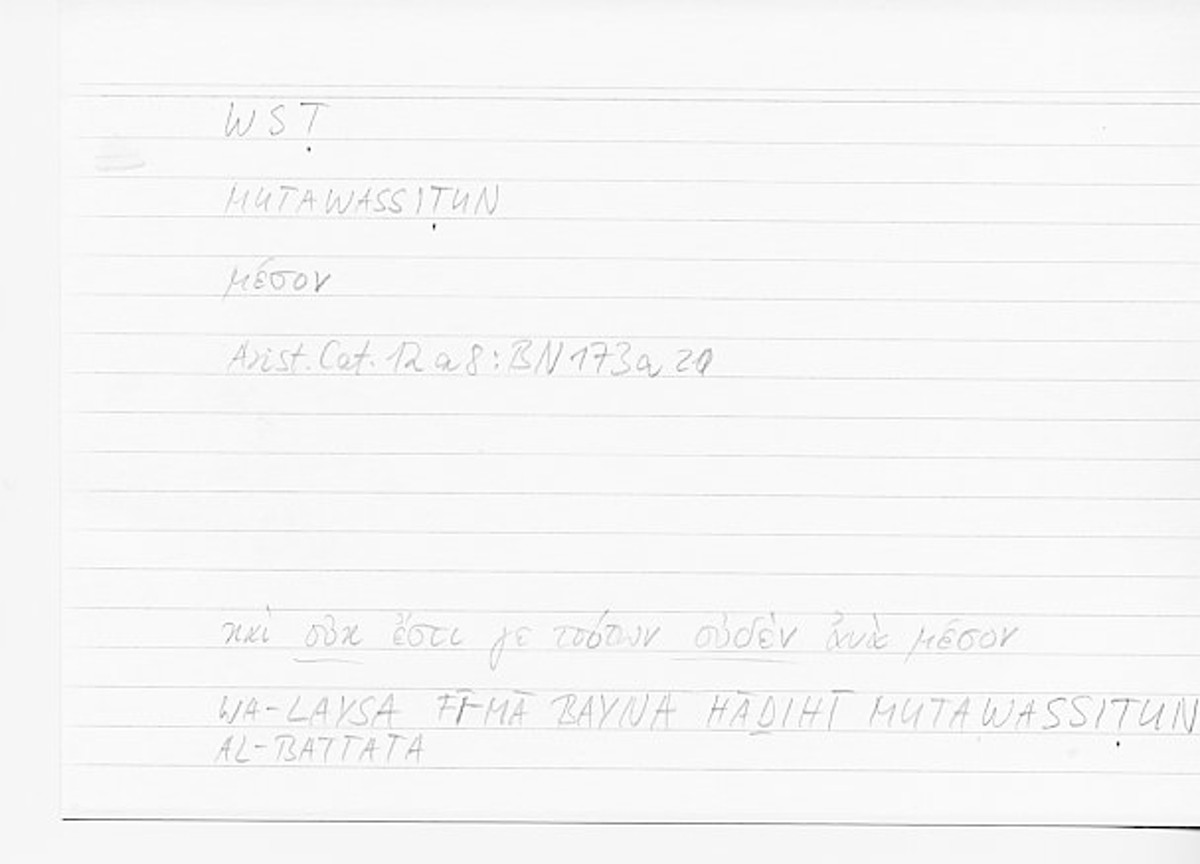 WSṬ
MUTAWASSIṬUN
μέσον
Arist. Cat. 12 a 8 : BN 173 a 20
καὶ οὐκ ἔστι γε τούτων οὐδὲν ἀνὰ μέσον
WA-LAYSA FĪ-MĀ BAYNA HĀḎIHĪ MUTAWASSIṬUN
AL-BATTATA